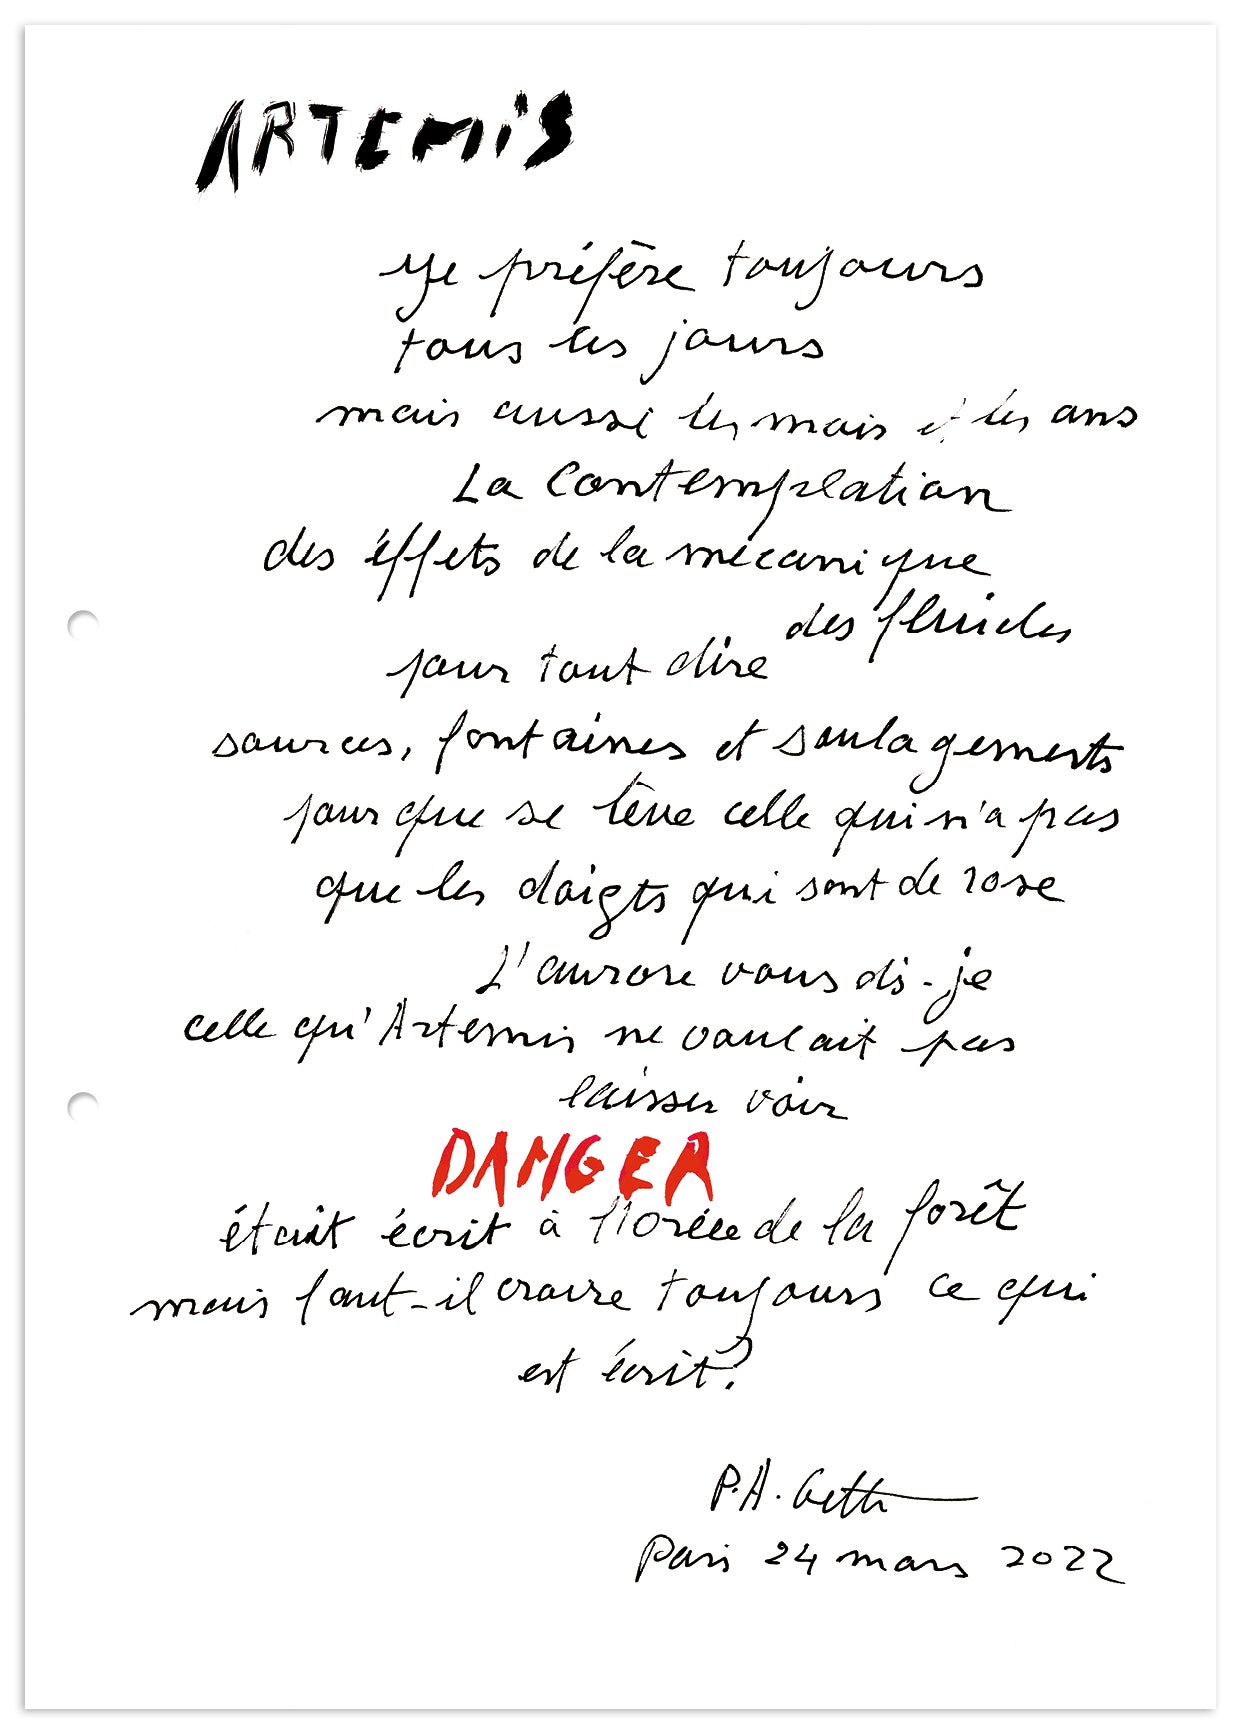 ARTEMIS
Je préfère toujours
tous les jours
mais aussi les mois et les ans
La Contemplation
des éffets de la mécanique
des fluides
pour tout dire
sources, fontaines et soulagements
pour que se lève celle qui n'a pas
que les doigts qui sont de rose
L'aurore vous dis-je
celle qu'Artemis ne voulait pas
laisser voir
DANGER
était écrit à l'orée de la forêt
mais faut-il croire toujours ce qui
est écrit?
P.A. Gette
Paris 24 mars 2022